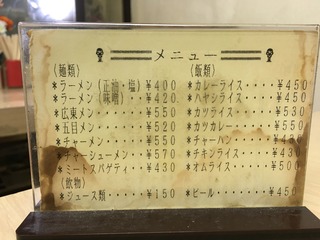 メニュー
(麺類)
*ラーメン(正油・塩)¥400
*ラーメン(味噌)・¥420
*広東メン・・・・・¥520
*五目メン・・・・・¥520
*チャーメン・・・・¥550
*チャーシューメン・¥570
*ミートスパゲティ・¥430
(飲物)
*ジュース類・・・・¥150
(飯類)
*カレーライス・・・・¥450
*ハヤシライス・・・・¥450
*カツライス・・・・・¥530
*カツカレー・・・・・¥550
*チャーハン・・・・・¥
*チキンライス・・・・¥430
*オムライス・・・・・¥500
*ビール・・・・・・・¥450